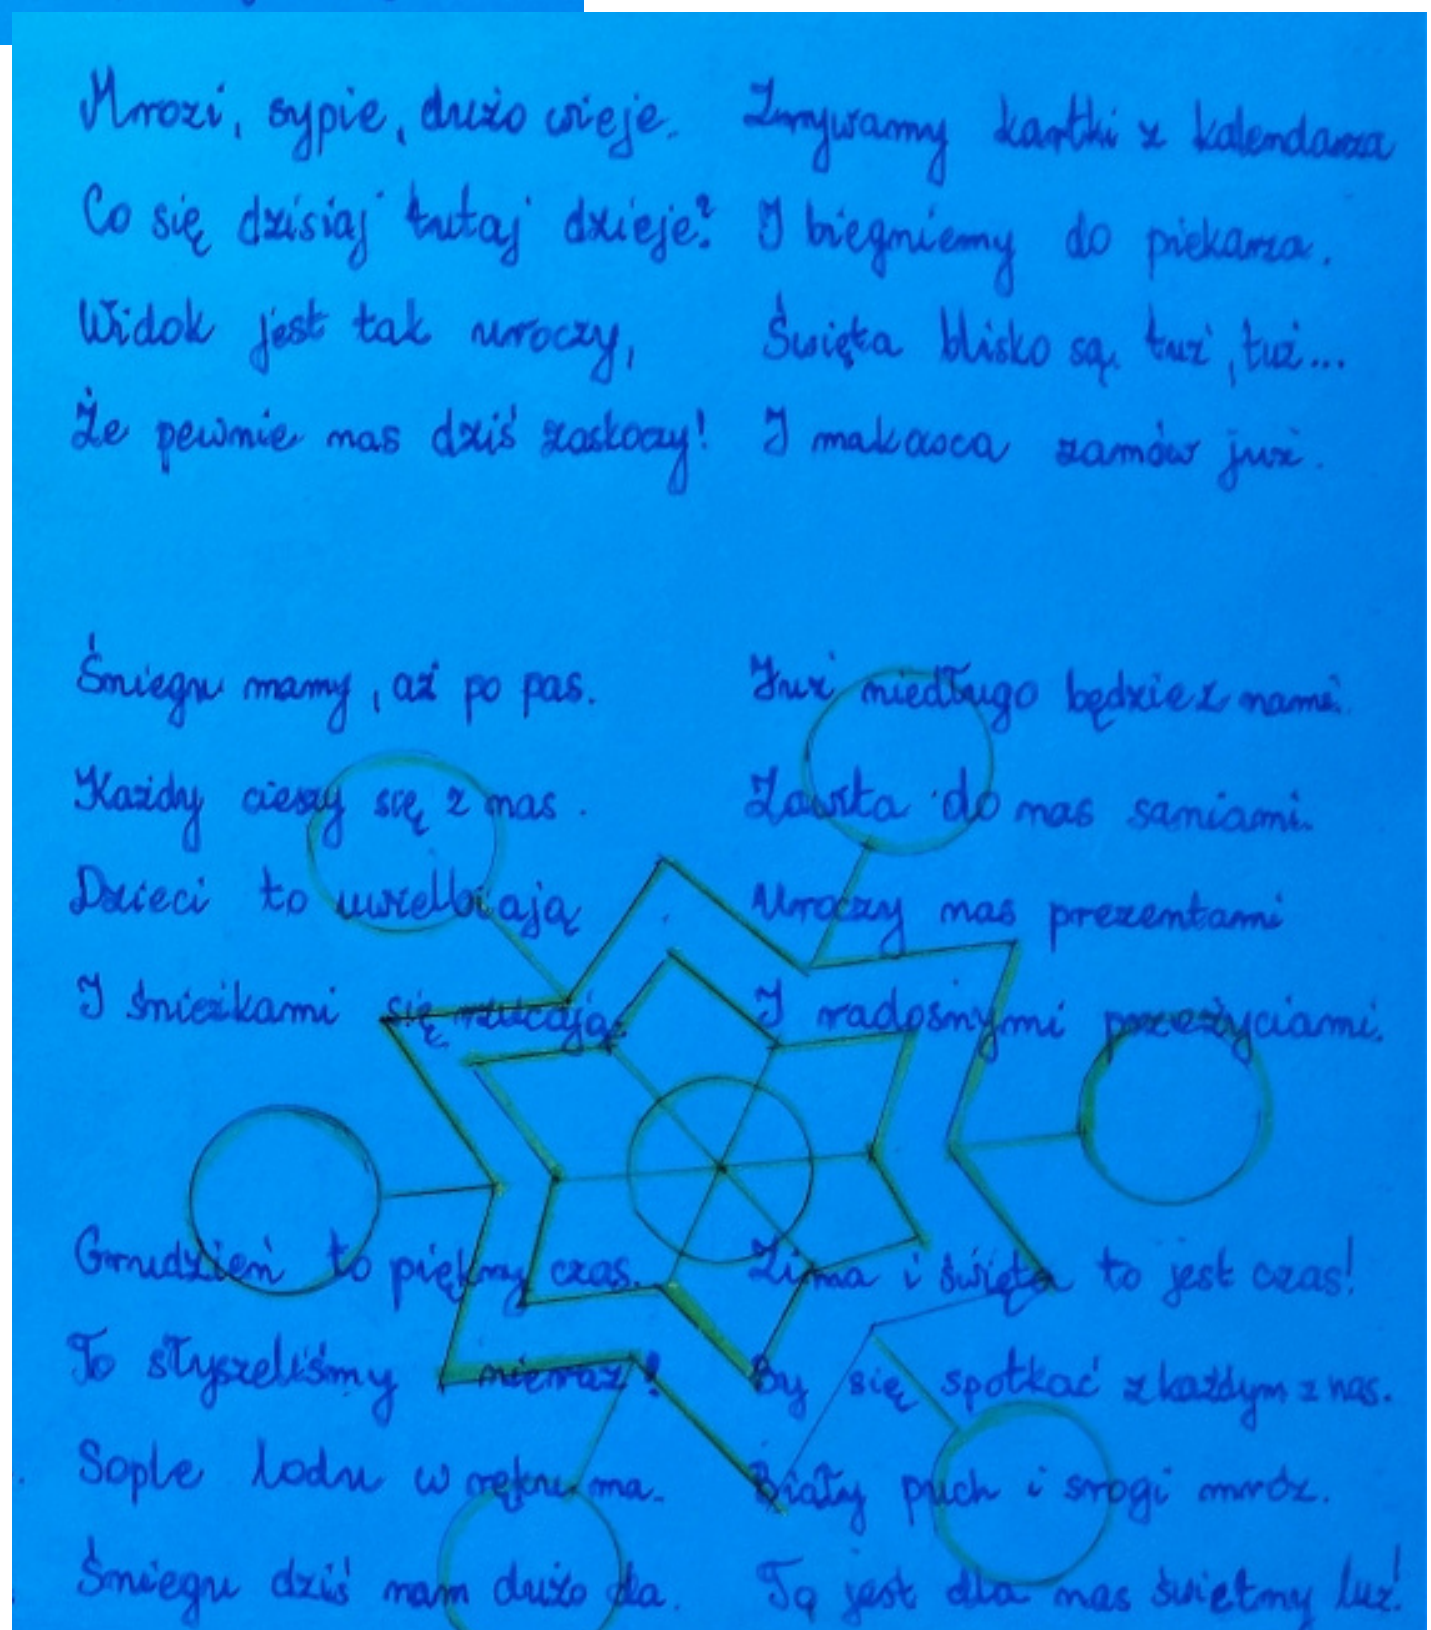 Mrozi, sypie, dużo wieje.
Co się dzisiaj tutaj dzieje?
Widok jest tak uroczy,
Że pewnie nas dziś zaskoczy!
Śniegu mamy, aż po pas.
Każdy cieszy się z nas.
Dzieci to uwielbiają
I śnieżkami się rzucają.
Grudzień to piękny czas.
To słyszeliśmy nieraz!
Sople lodu w ręku ma.
Śniegu dziś nam dużo da.
Zrywamy kartki z kalendarza
I biegniemy do piekarza.
Święta blisko są tuż, tuż...
I makowca zamów już.
Już niedługo będzie z nami.
Zawita do nas saniami.
Uroczy nas prezentami
I radosnymi przeżyciami.
Zima i święta to jest czas!
By się spotkać z każdym z nas.
Biały puch i srogi mróz.
To jest dla nas świetny luz!